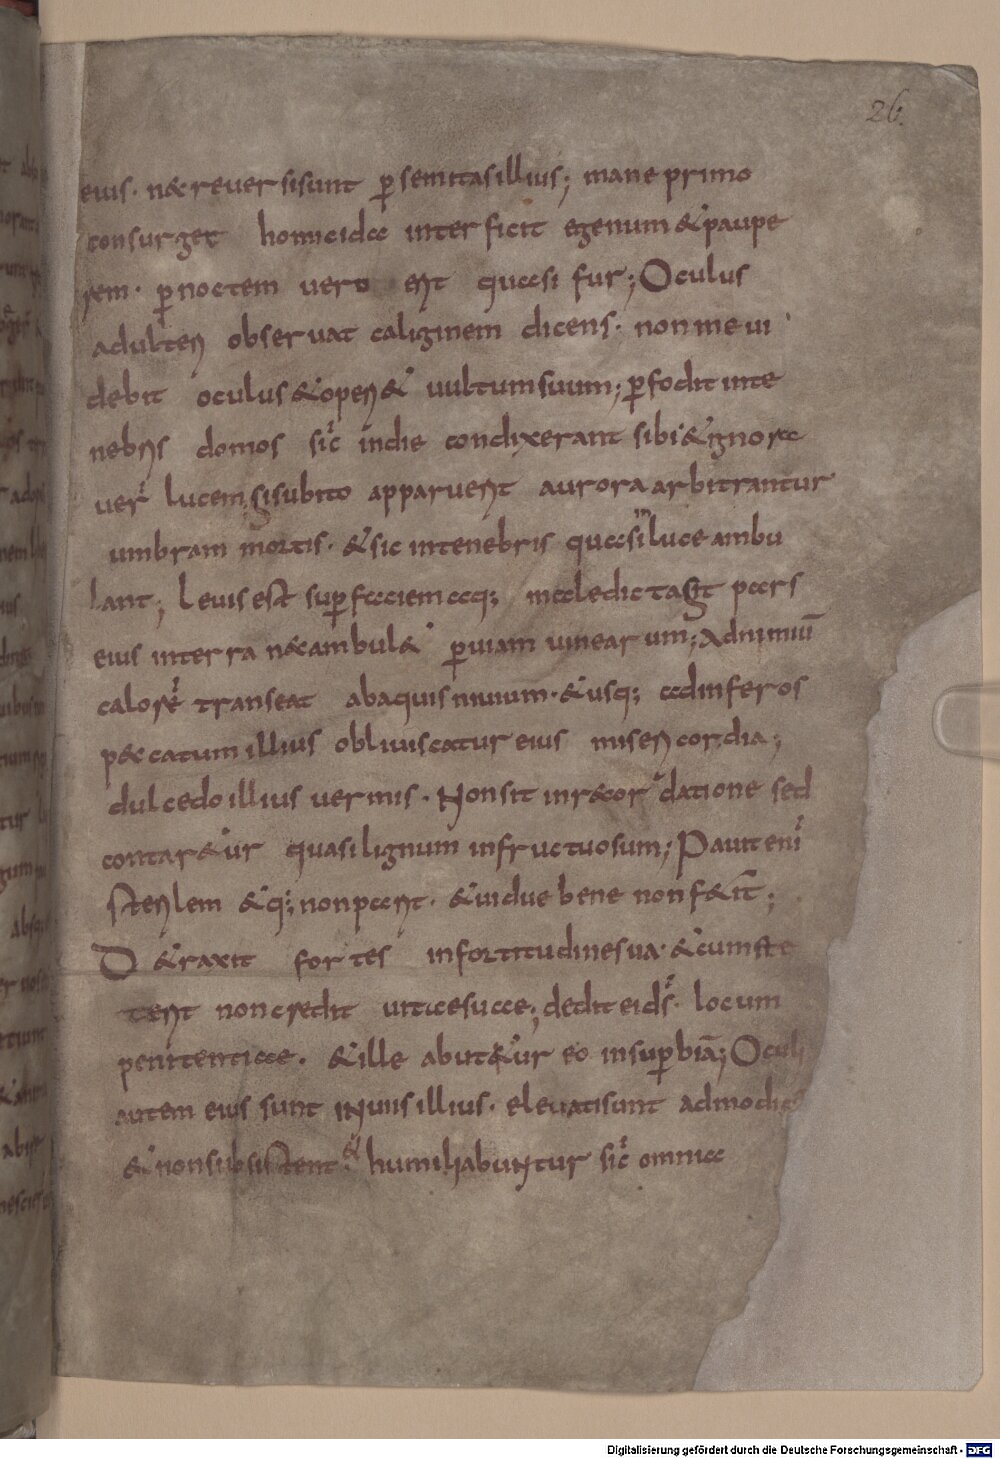 26.
eius. n&reuersisunt p̱semitasillius; mane primo
consurget homicida interficit egenum &paupe
rem. p̱noctem uero erit quasi fur; Oculus
adulteri obseruat caliginem dicens. nonmeui
debit oculus &operi& uultumsuum; p̱fodit inte
nebris domos sic̄ indie condixerant sibi &ignora
uer̄ lucem sisubito apparuerit aurora arbitrantur
umbram mortis. &sic intenebris quasi inluce ambu
lant; leuis est sup̱faciem aq; maledictasit pars
eius interra n&ambul& p̱uiam uinearum; Adnimiū
calorē transeat abaquis niuium. &usq; adinferos
p&catum illius obliuiscatur eius misericordia;
dulcedo illius uermis. Nonsit inr&cordatione sed
contar&ur quasi lignum infructuosum; Pauit enī
sterilem &q; nonparit. &uidue bene nonf&it̄;
D&raxit fortes infortitudinesua. &cumste
terit noncredit uitaesuae; dedit eids̄. locum
penitentiae. &ille abut&ur eo insup̱biā; Oculi
autem eius sunt inuiis illius. eleuatisunt admodicū
&nonsubsistent & humiliabuntur sic̄ omnia
Digitalisierung gefördert durch die Deutsche Forschungsgemeinschaft - DFG